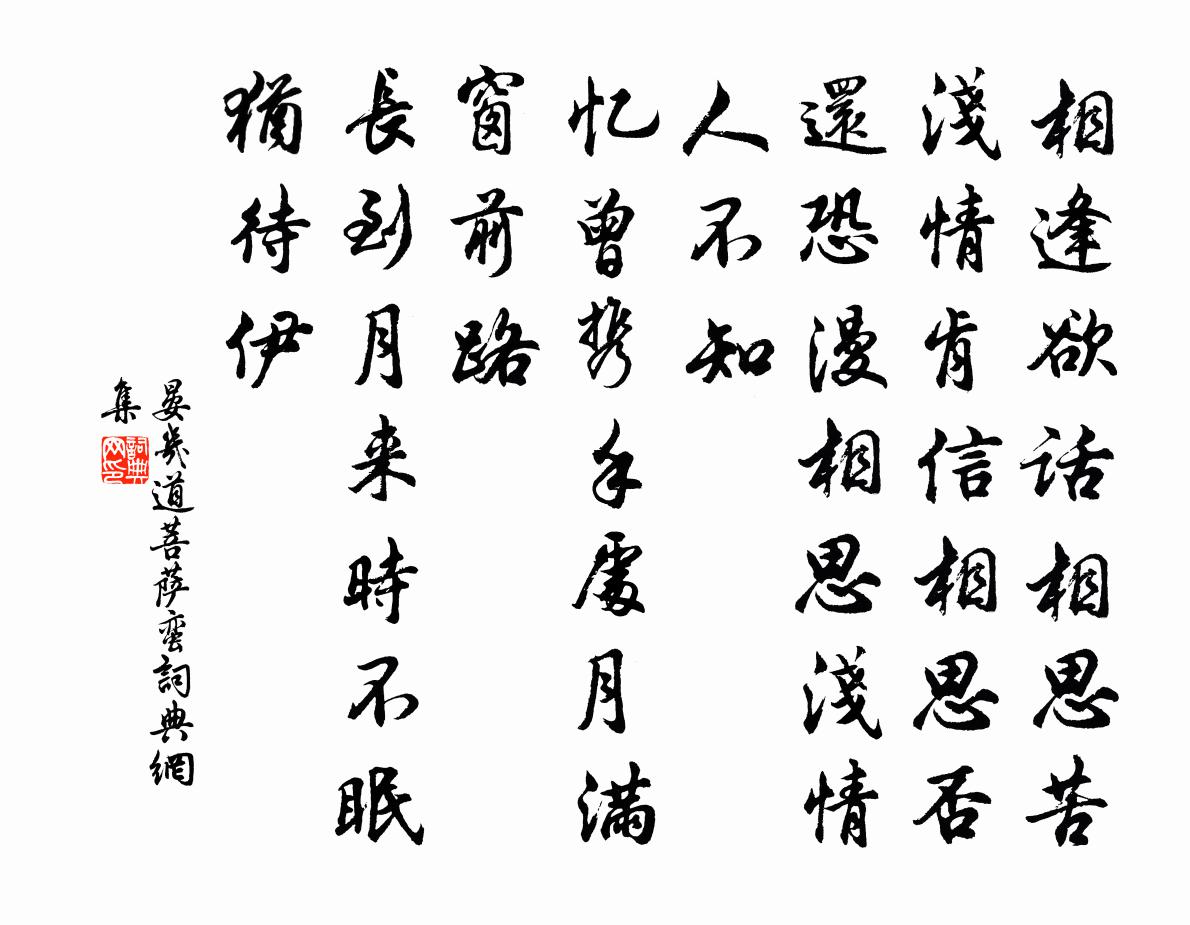 相逢欲話相思苦
淺情肯信相思否
還恐漫相思淺情
人不知
忆曾携手處月滿
窗前路
長到月来時不眠
猶待伊
晏幾道菩萨蛮詞典網
集
詞典网印